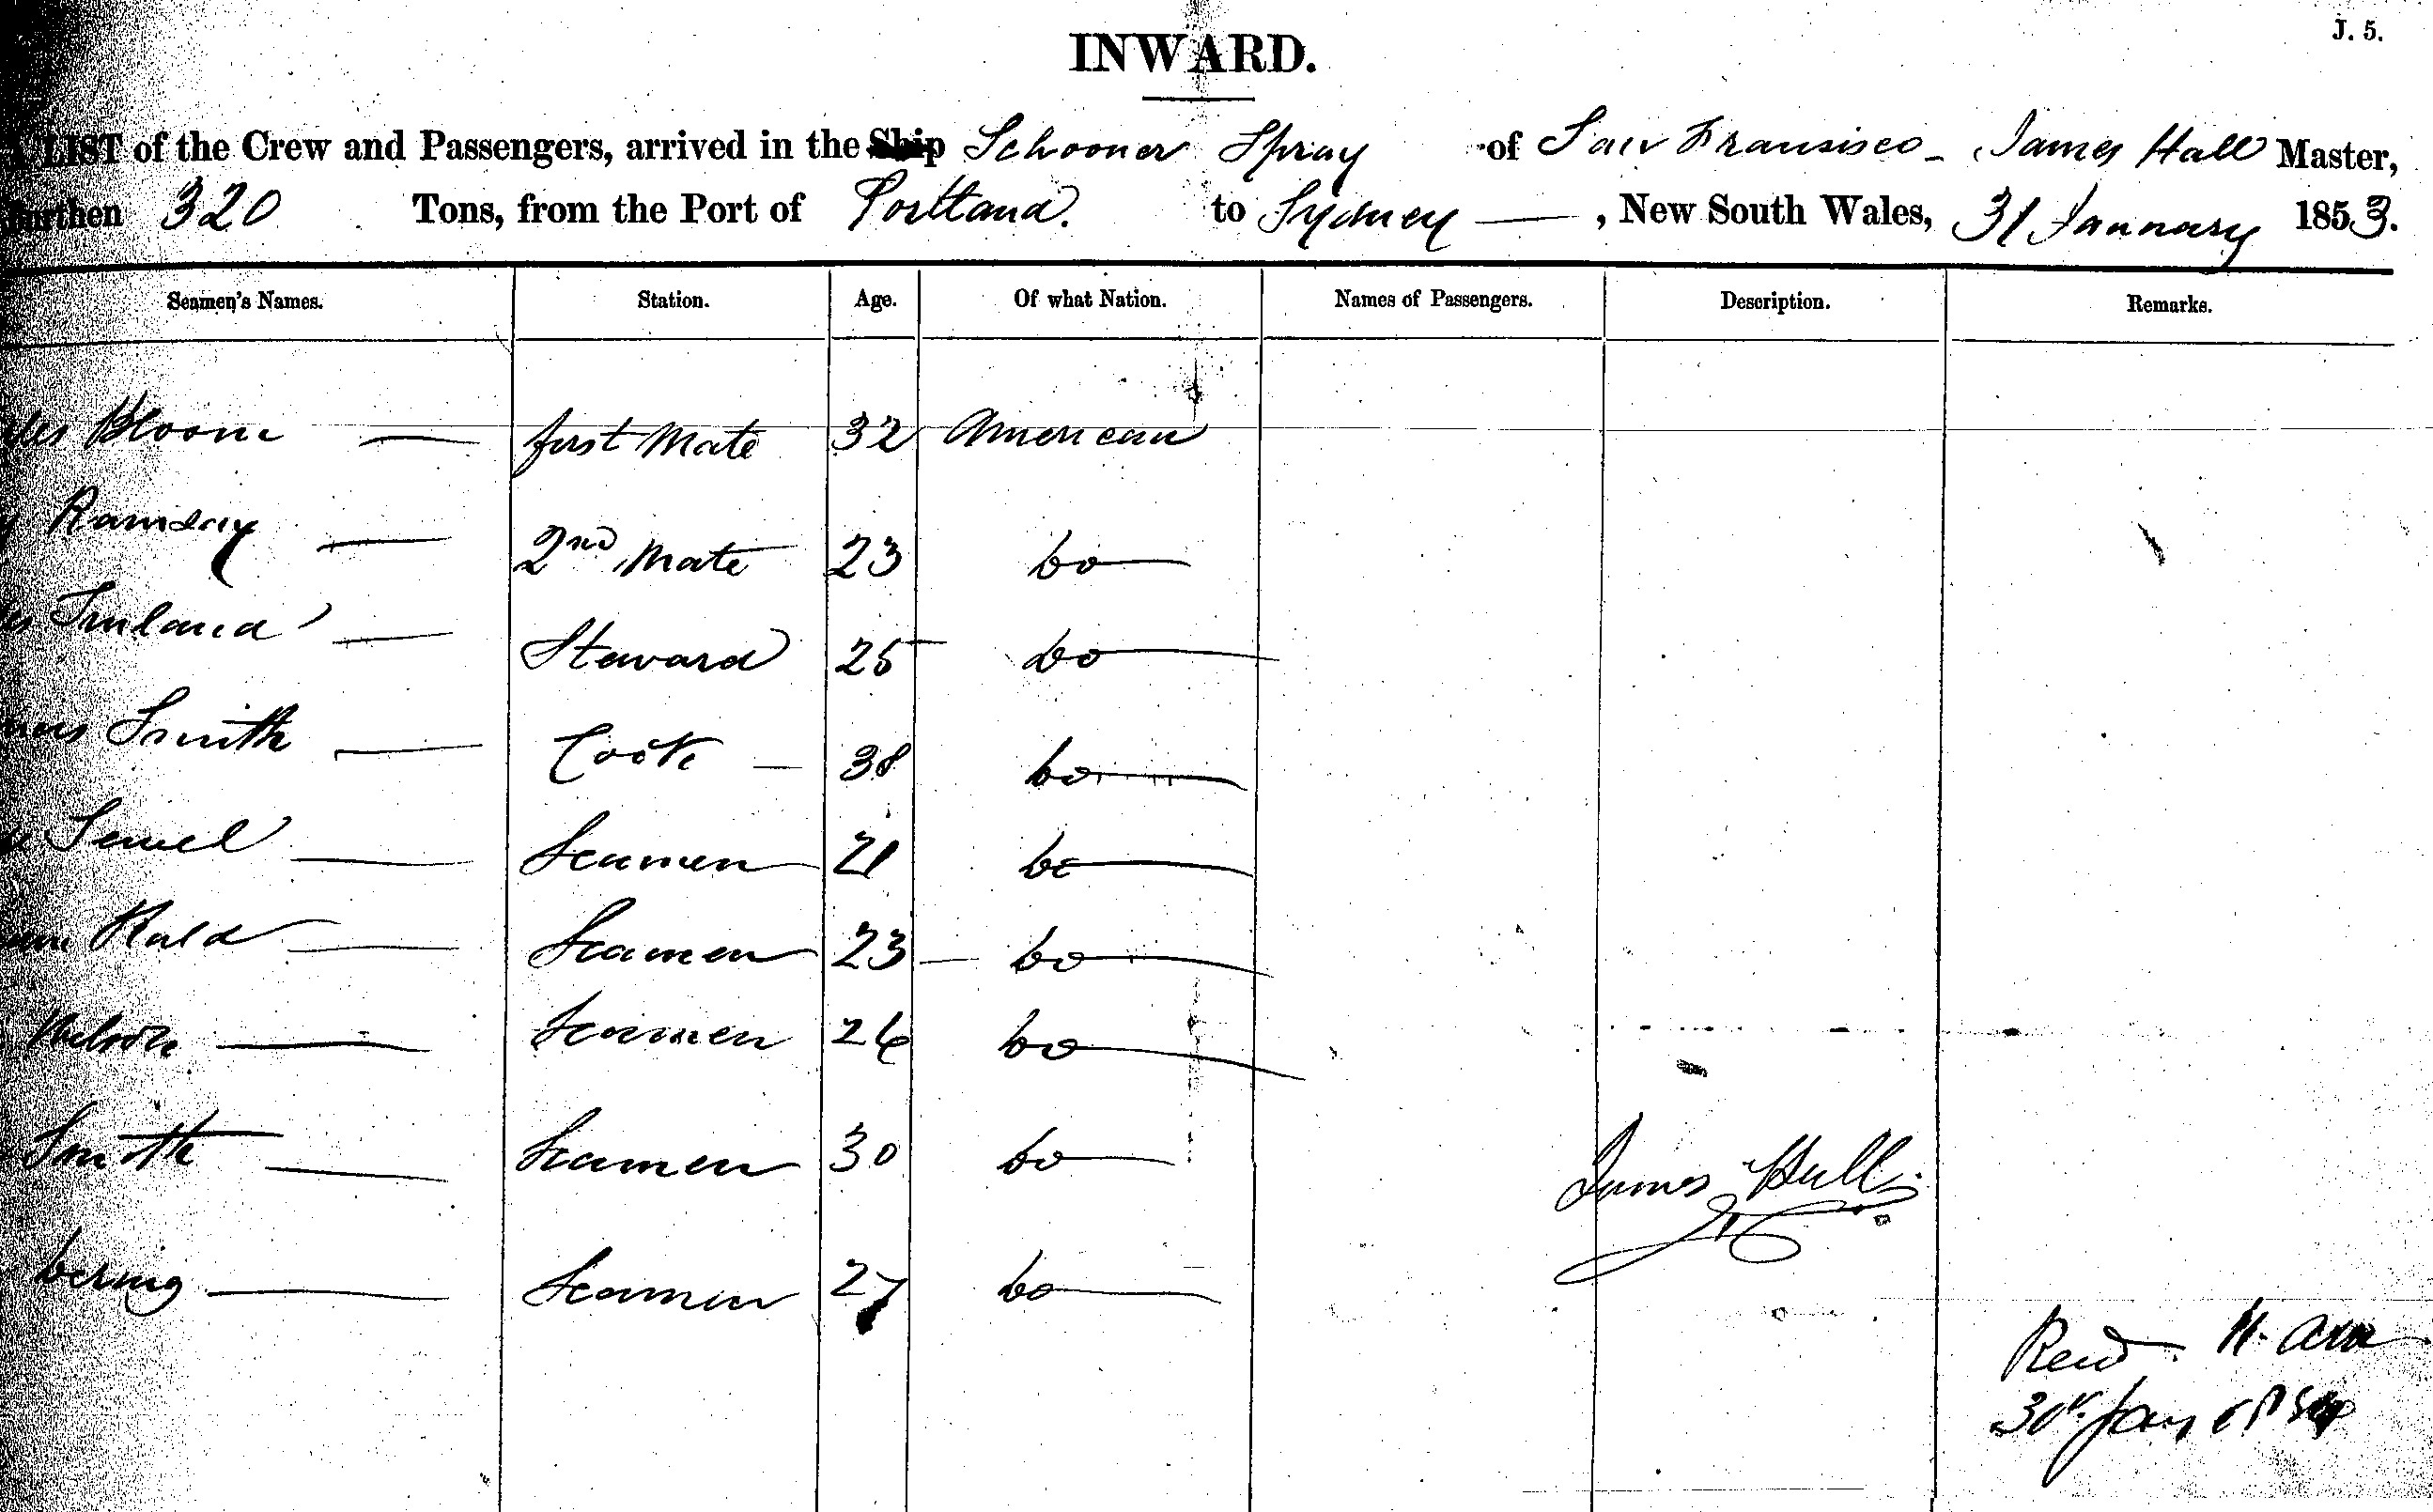 J. 5.
INWARD.
A LIST of the Crew and Passengers, arrived in the Ship Schooner Spray of San Fransisco - James Hall Master,
Burthen 320 Tons, from the Port of Portland. to Sydney — , New South Wales, 31 January 1853.
Seamen's Names. Station. Age. Of what Nation. Names of Passengers. Description. Remarks.
Bloom — first Mate 32 American
Ramsay — 2nd Mate 23 Do —
— Steward 25 Do —
Smith — Cook — 38 Do —
— Seamen 21 Do —
— Seamen 23 — Do —
— Seamen 26 Do —
Smith — Seamen 30 Do —
James Hall
— Seamen 27 Do —
30 Jany